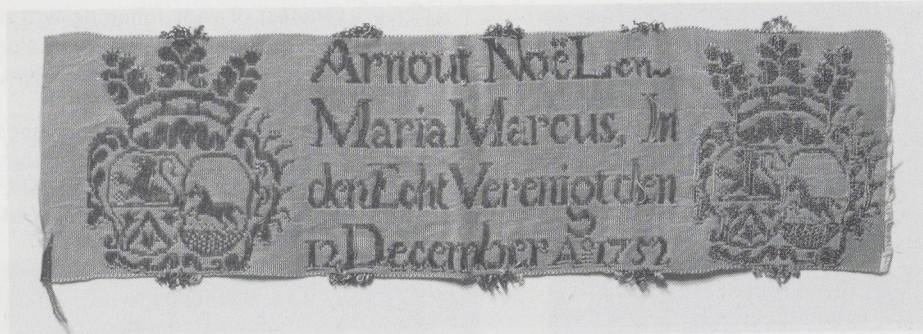 Arnout Noël en
Maria Marcus, In
den Echt Verenigt den
12 December Aº 1752